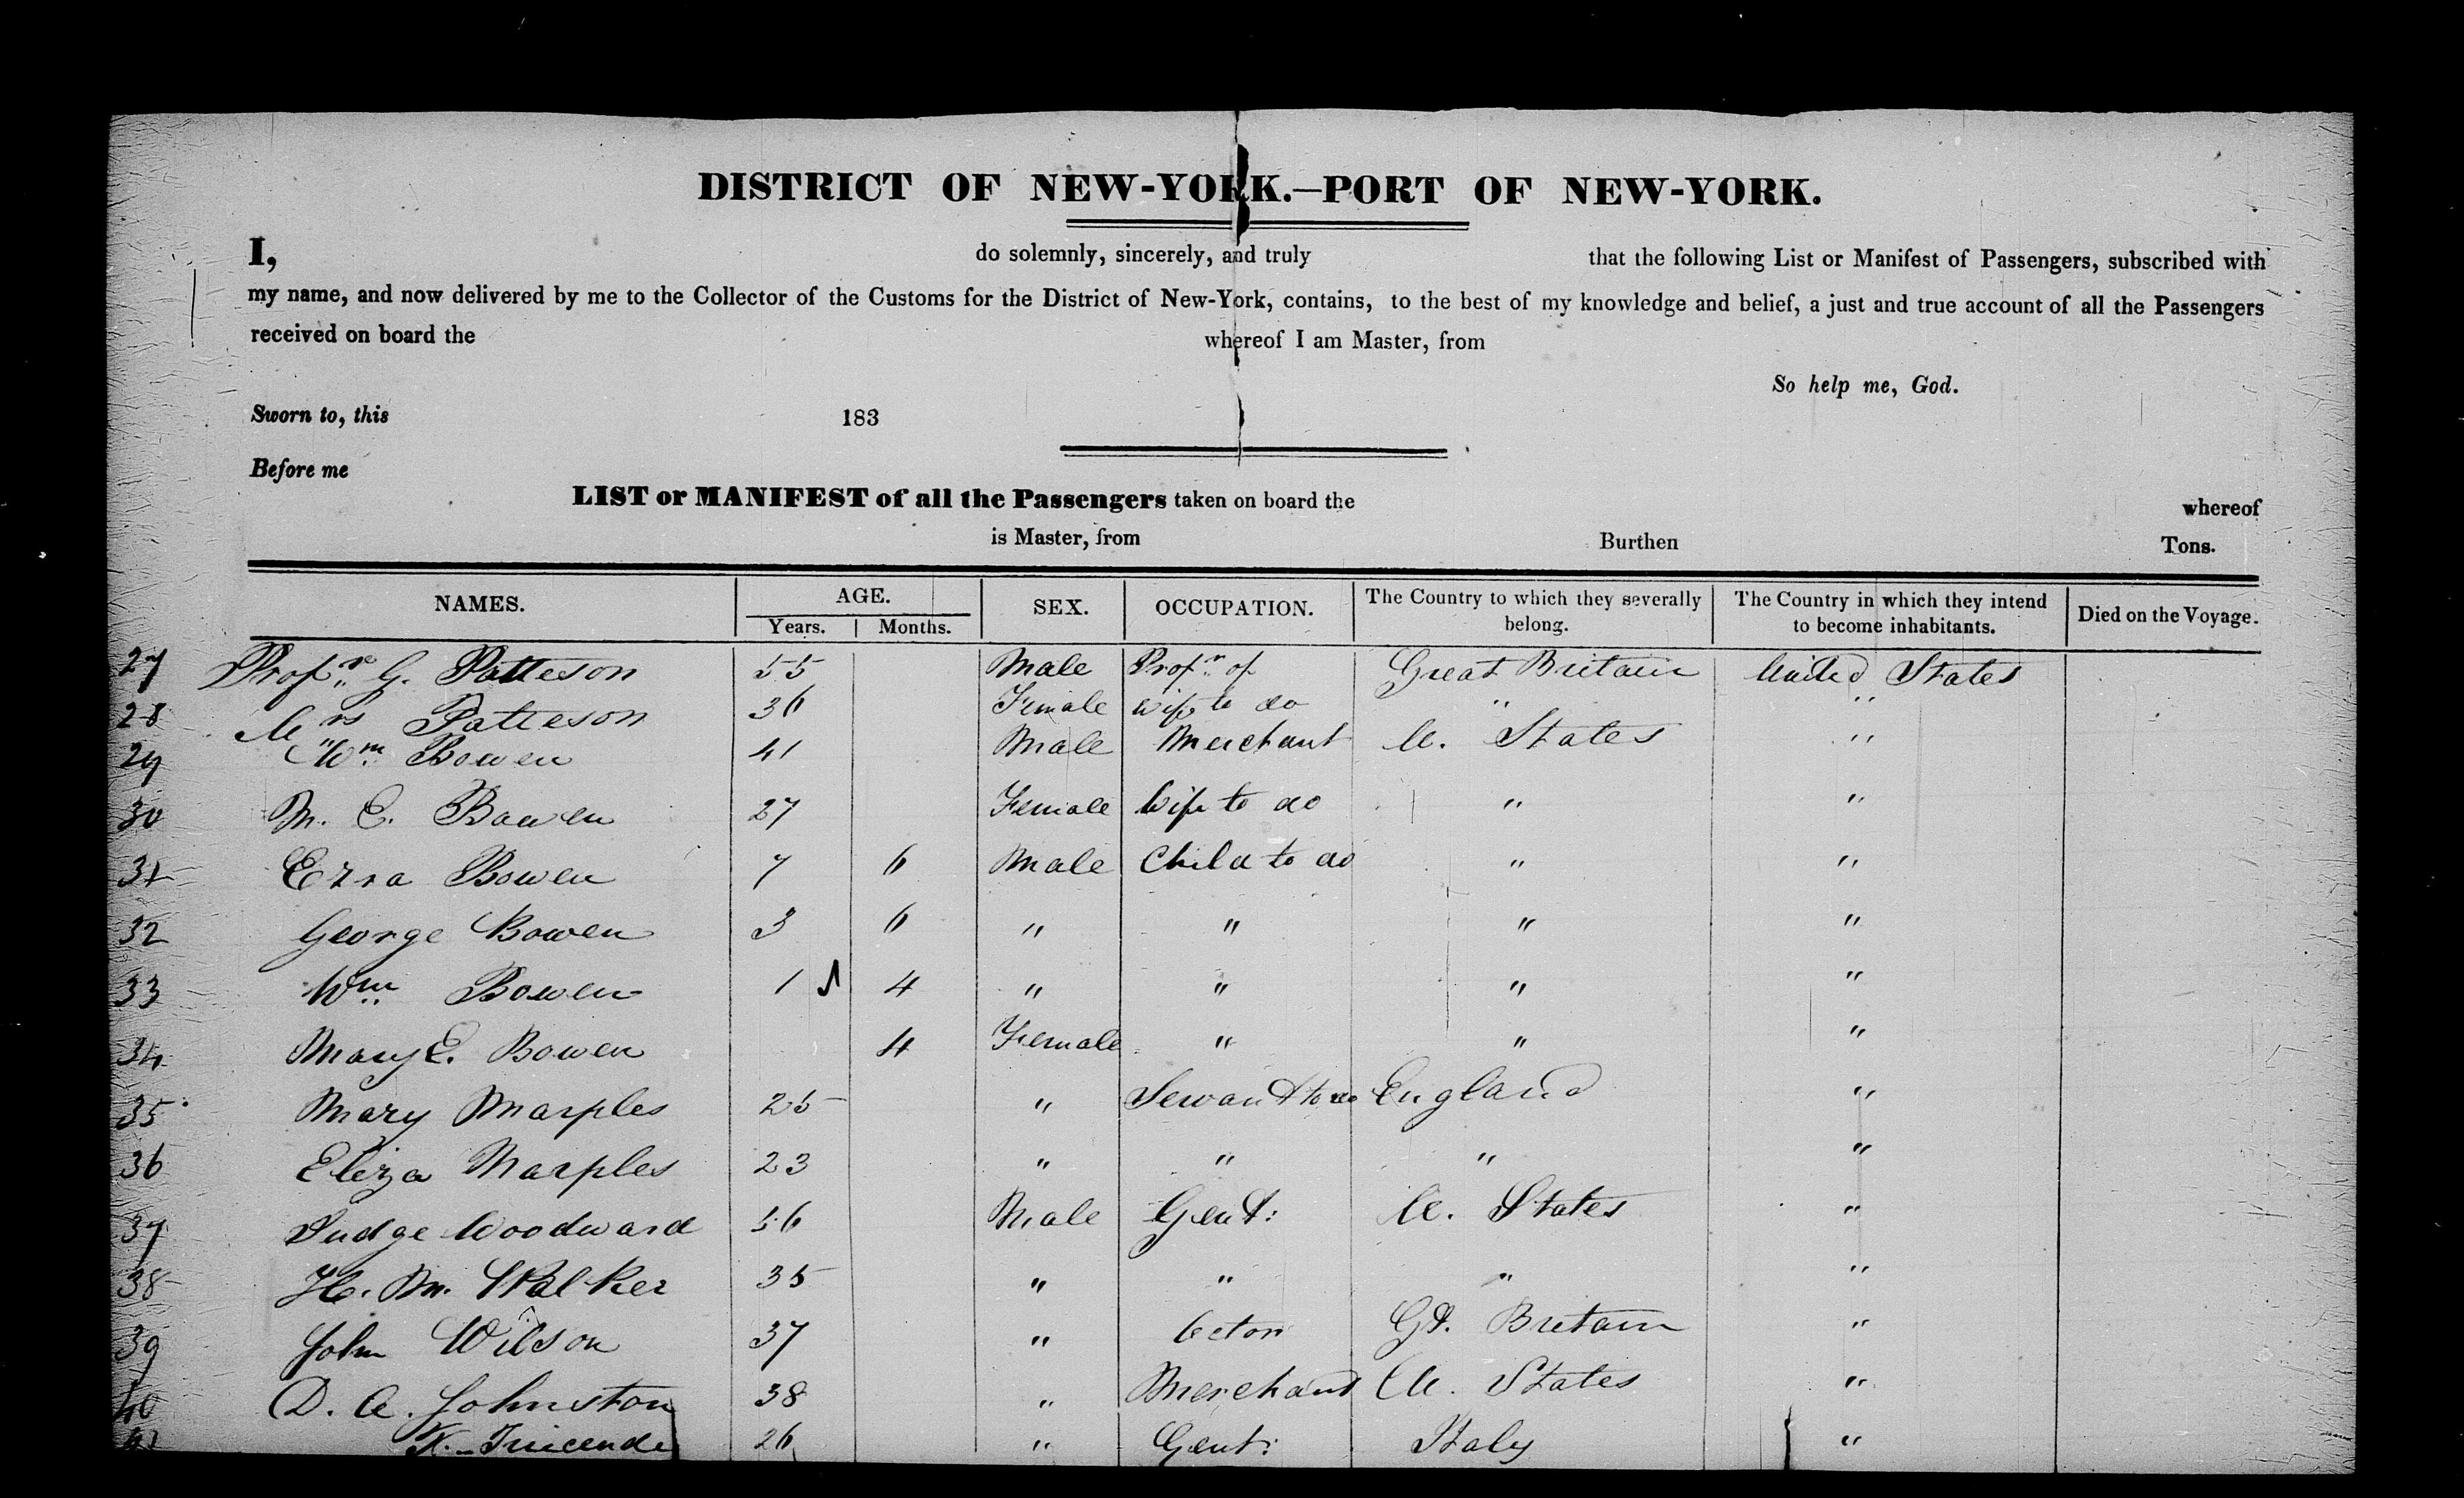 DISTRICT OF NEW-YORK.—PORT OF NEW-YORK.
I, do solemnly, sincerely, and truly that the following List or Manifest of Passengers, subscribed with
my name, and now delivered by me to the Collector of the Customs for the District of New-York, contains, to the best of my knowledge and belief, a just and true account of all the Passengers
received on board the whereof I am Master, from
So help me, God.
Sworn to, this 183
Before me
LIST or MANIFEST of all the Passengers taken on board the whereof
is Master, from Burthen Tons.
NAMES. AGE. SEX. OCCUPATION. The Country to which they severally belong. The Country in which they intend to become inhabitants. Died on the Voyage.
Years. Months.
27 Profr. G. Patteson 55 Male Profr. of Great Britain United States
28 Mrs Patteson 36 Female wife to do " "
29 Wm. Bowen 41 Male Merchant U. States "
30 M. E. Bowen 27 Female Wife to do " "
31 Ezra Bowen 7 6 Male Child to do " "
32 George Bowen 3 6 " " " "
33 Wm. Bowen 1 4 " " " "
34 Mary E. Bowen 4 Female " " "
35 Mary Marples 25 " Servant to do England "
36 Eliza Marples 23 " " " "
37 Judge Woodward 56 Male Gent: U. States "
38 H. M. Walker 35 " " " "
39 John Wilson 37 " Gt. Britain "
40 D. A. Johnston 38 " Merchant U. States "
41 K. 26 " Gent: Italy "